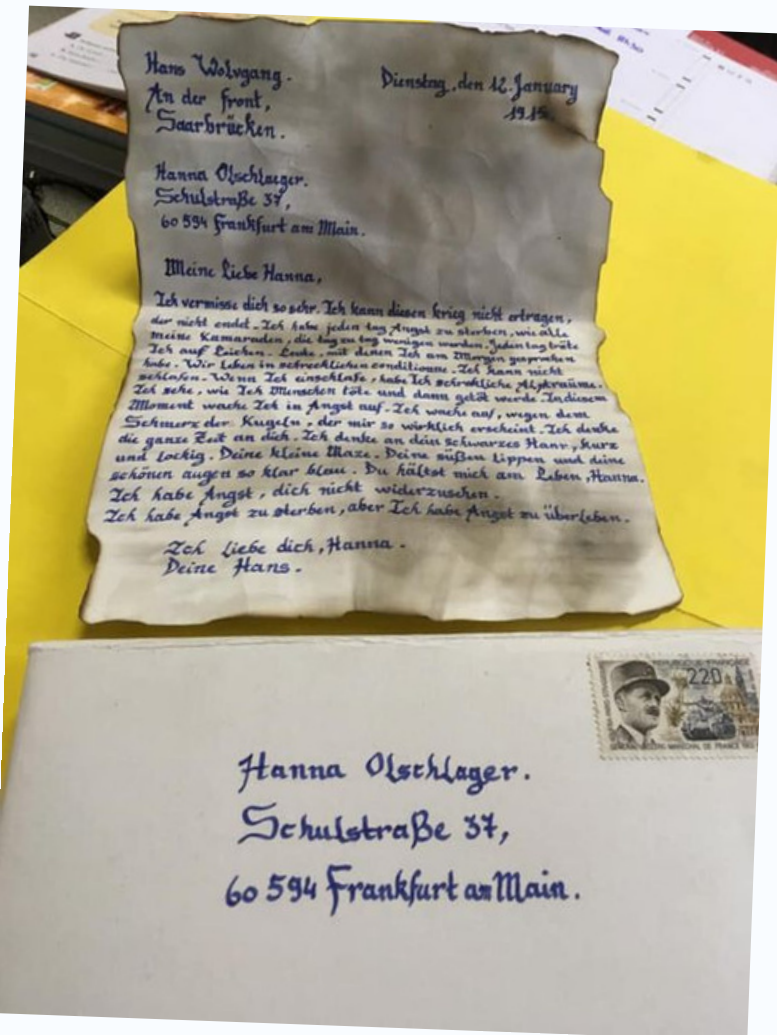 Hans Wolvgang.
An der front,
Saarbrücken.
Dienstag, den 12. January
1915.
Hanna Olschlaeger.
Schulstraße 37,
60 594 Frankfurt am Main.
Meine Liebe Hanna,
Ich vermisse dich so sehr. Ich kann diesen krieg nicht ertragen,
der nicht endet. Ich habe jeden tag Angst zu sterben, wie alle
meine Kamaraden, die tag zu tag weniger werden. Jeden tag
Ich auf Leichen. Leute, mit denen Ich am Morgen gesprochen
habe. Wir leben in schrecklichen conditionne. Ich kann nicht
schlafen. Wenn Ich einschlafe, habe Ich schrekliche Alpträume.
Ich sehe, wie Ich Menschen töte und dann getöt werde. In diesem
Moment wache Ich in Angst auf. Ich wache auf, wegen dem
Schmerz der Kugeln, der mir so wirklich erscheint. Ich denke
die ganze Zeit an dich. Ich denke an dein schwarzes Haar, kurz
und lockig. Deine kleine Naze. Deine süßen Lippen und deine
schönen augen so klar blau. Du hältst mich am Leben, Hanna.
Ich habe Angst, dich nicht widerzusehen.
Ich habe Angst zu sterben, aber Ich habe Angst zu überleben.
Ich liebe dich, Hanna.
Deine Hans.
REPUBLIQUE FRANÇAISE
220
MARECHAL DE FRANCE
Hanna Olschlager.
Schulstraße 37,
60 594 Frankfurt am Main.